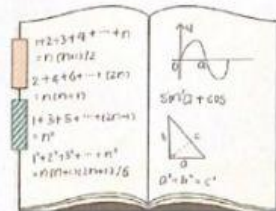 1+2+3+4+ ⋯ +n
= n(n+1)/2
2+4+6+ ⋯ +(2n)
= n(n+1)
1+3+5+ ⋯ +(2n-1)
= n²
1²+2²+3²+ ⋯ +n²
= n(n+1)(2n+1)/6
y
0
a
b
c
a
a²+b²=c²